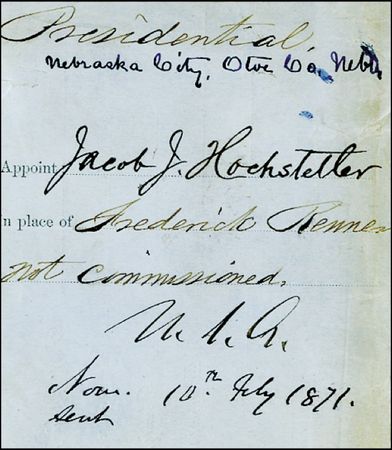 Presidential,
Nebraska City, Otoe Co, Nebr
Appoint Jacob J. Hochstetler
n place of Frederick Renner
not commissioned.
U. S. G.
Nom. 10th Feby 1871.
sent